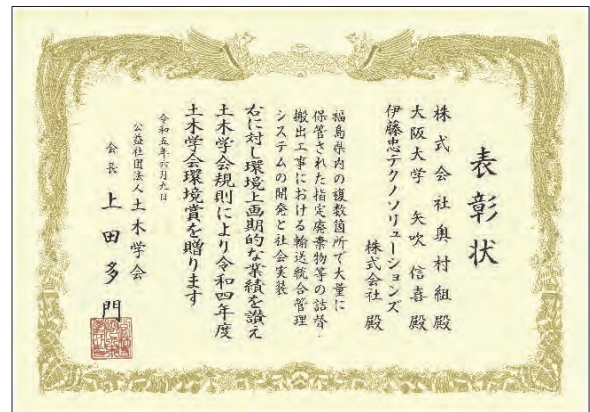 表彰状
株式会社奥村組殿
大阪大学 矢吹信喜殿
伊藤忠テクノソリューションズ
株式会社殿
福島県内の複数箇所で大量に
保管された指定廃棄物等の詰替・
搬出工事における輸送統合管理
システムの開発と社会実装
右に対し環境上画期的な業績を讃え
土木学会規則により令和四年度
土木学会環境賞を贈ります
令和五年六月九日
公益社団法人土木学会
会長 上田多門